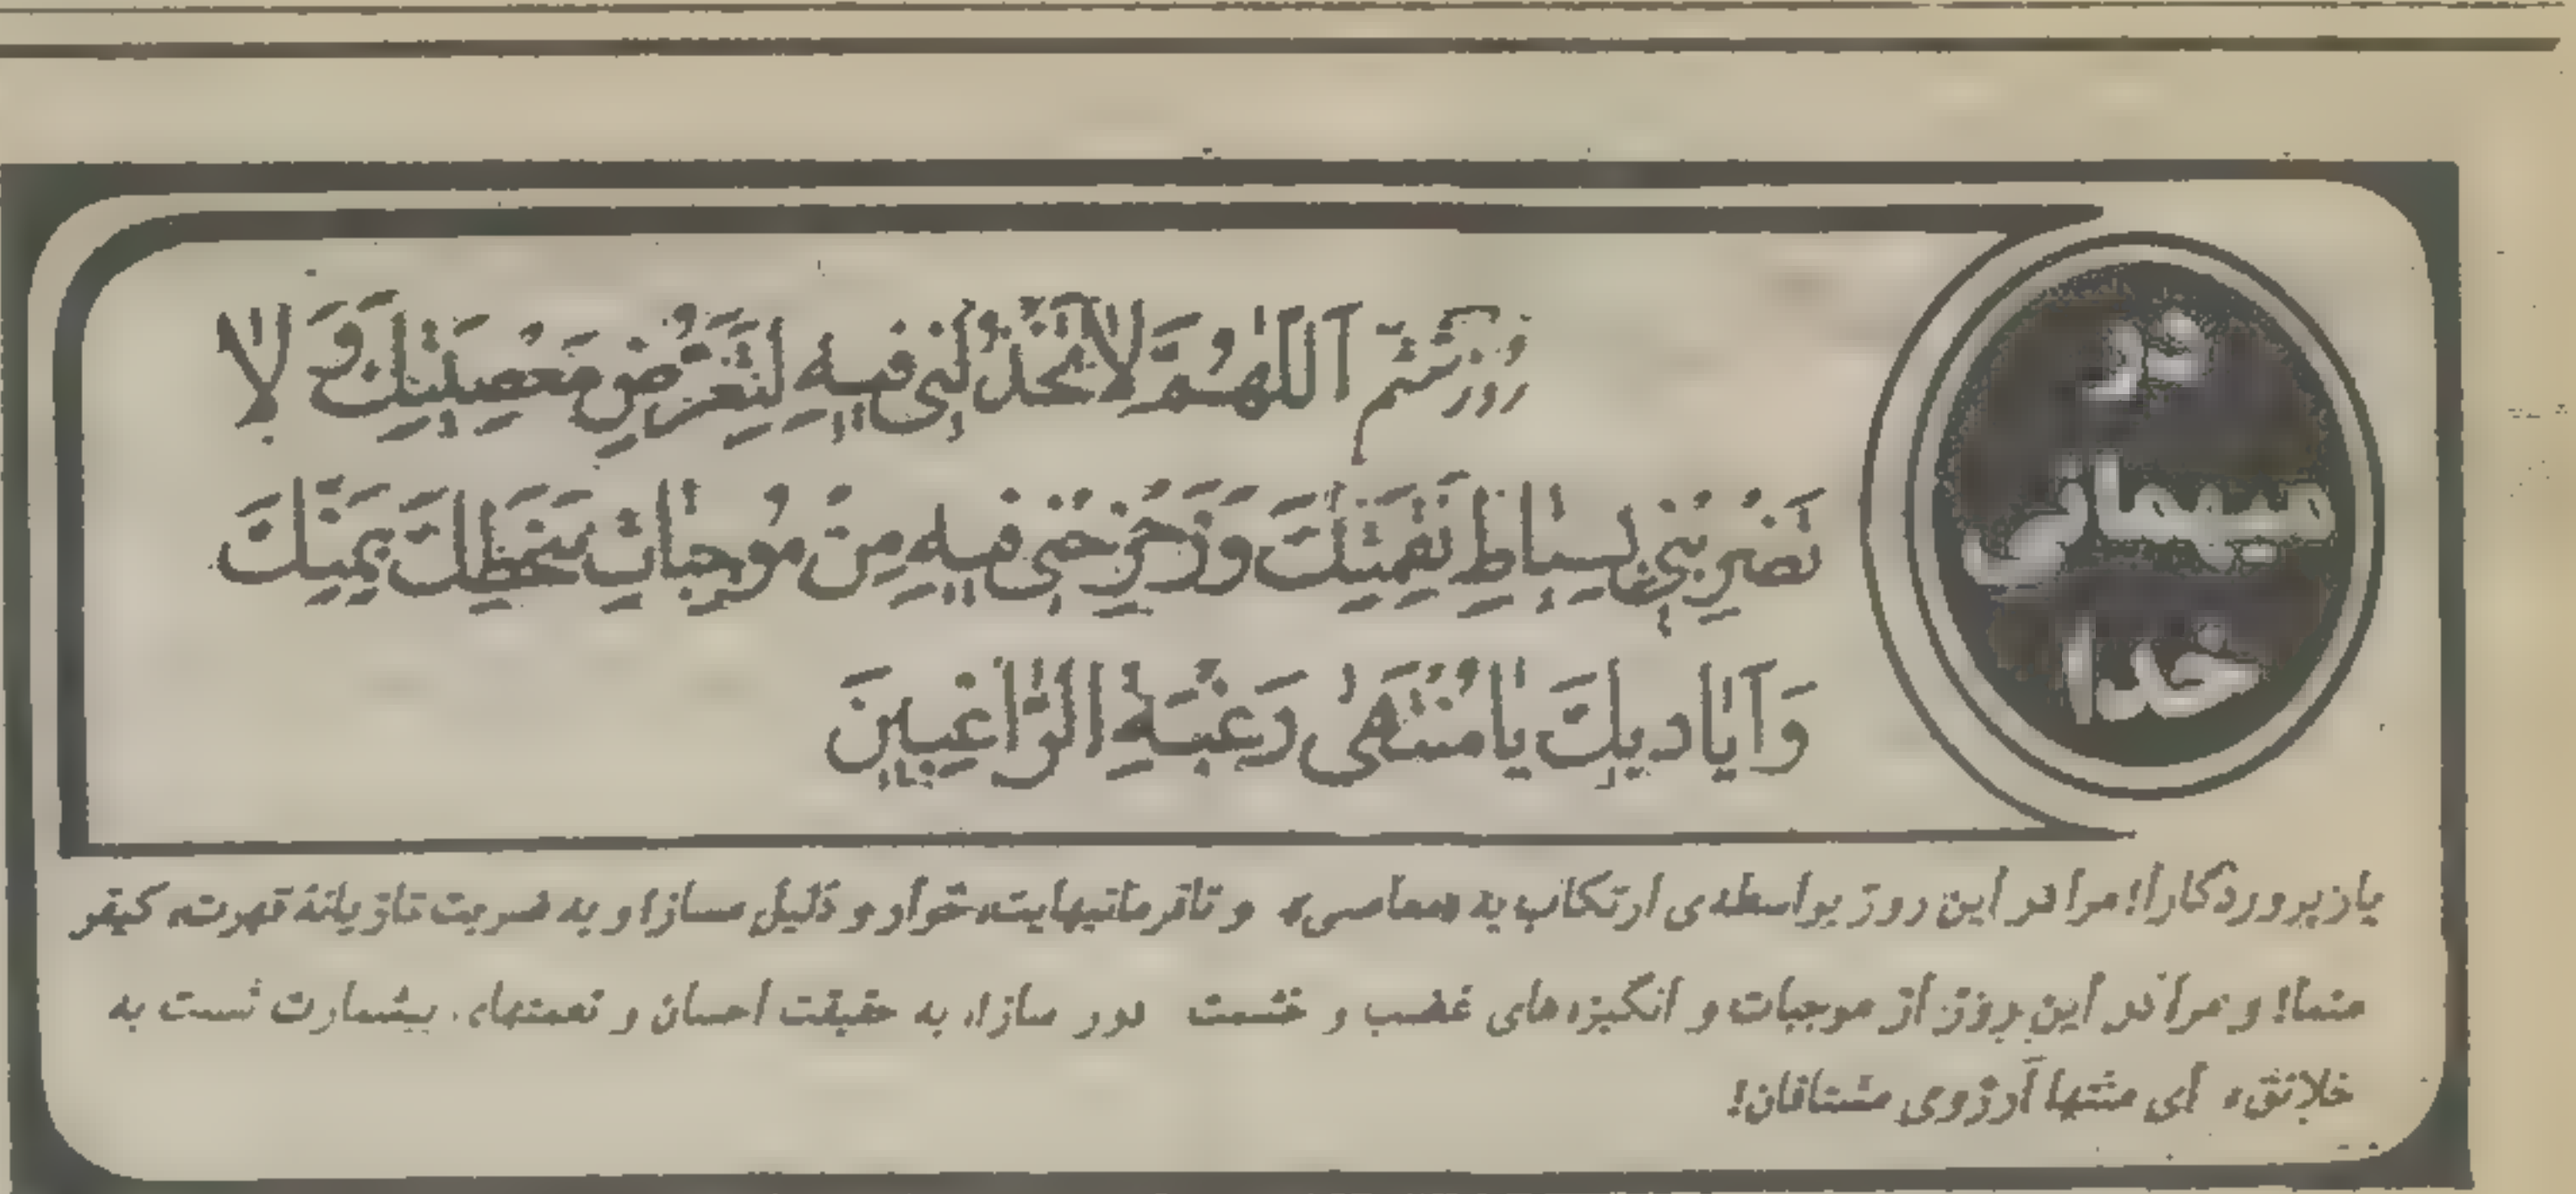 در
میهمانی
خدا
روزششم اَللّهُمَّ لاتَخْذُلْنی فیهِ لِتَعَرُّضِ مَعْصِیَتِكَ وَ لا
تَضْرِبْنی بِسِیاطِ نَقِمَتِكَ وَزَحْزِحْنی فیهِ مِنْ مُوجِباتِ سَخَطِكَ بِمَنِّكَ
وَاَیادیكَ یامُنْتَهیٰ رَغْبَةِ الرّاغِبینَ
بار پروردگارا! مرا در این روز بواسطه‌ی ارتکاب به «معاصی» و نافرمانیهایت، خوار و ذلیل مساز! و به ضربت تازیانهٔ قهرت، کیفر
منما! و مرا در این روز از موجبات و انگیزه‌های غضب و خشمت دور ساز! به حقیقت احسان و نعمتهای بیشمارت نسبت به
خلائق، ای منتها آرزوی مشتاقان!